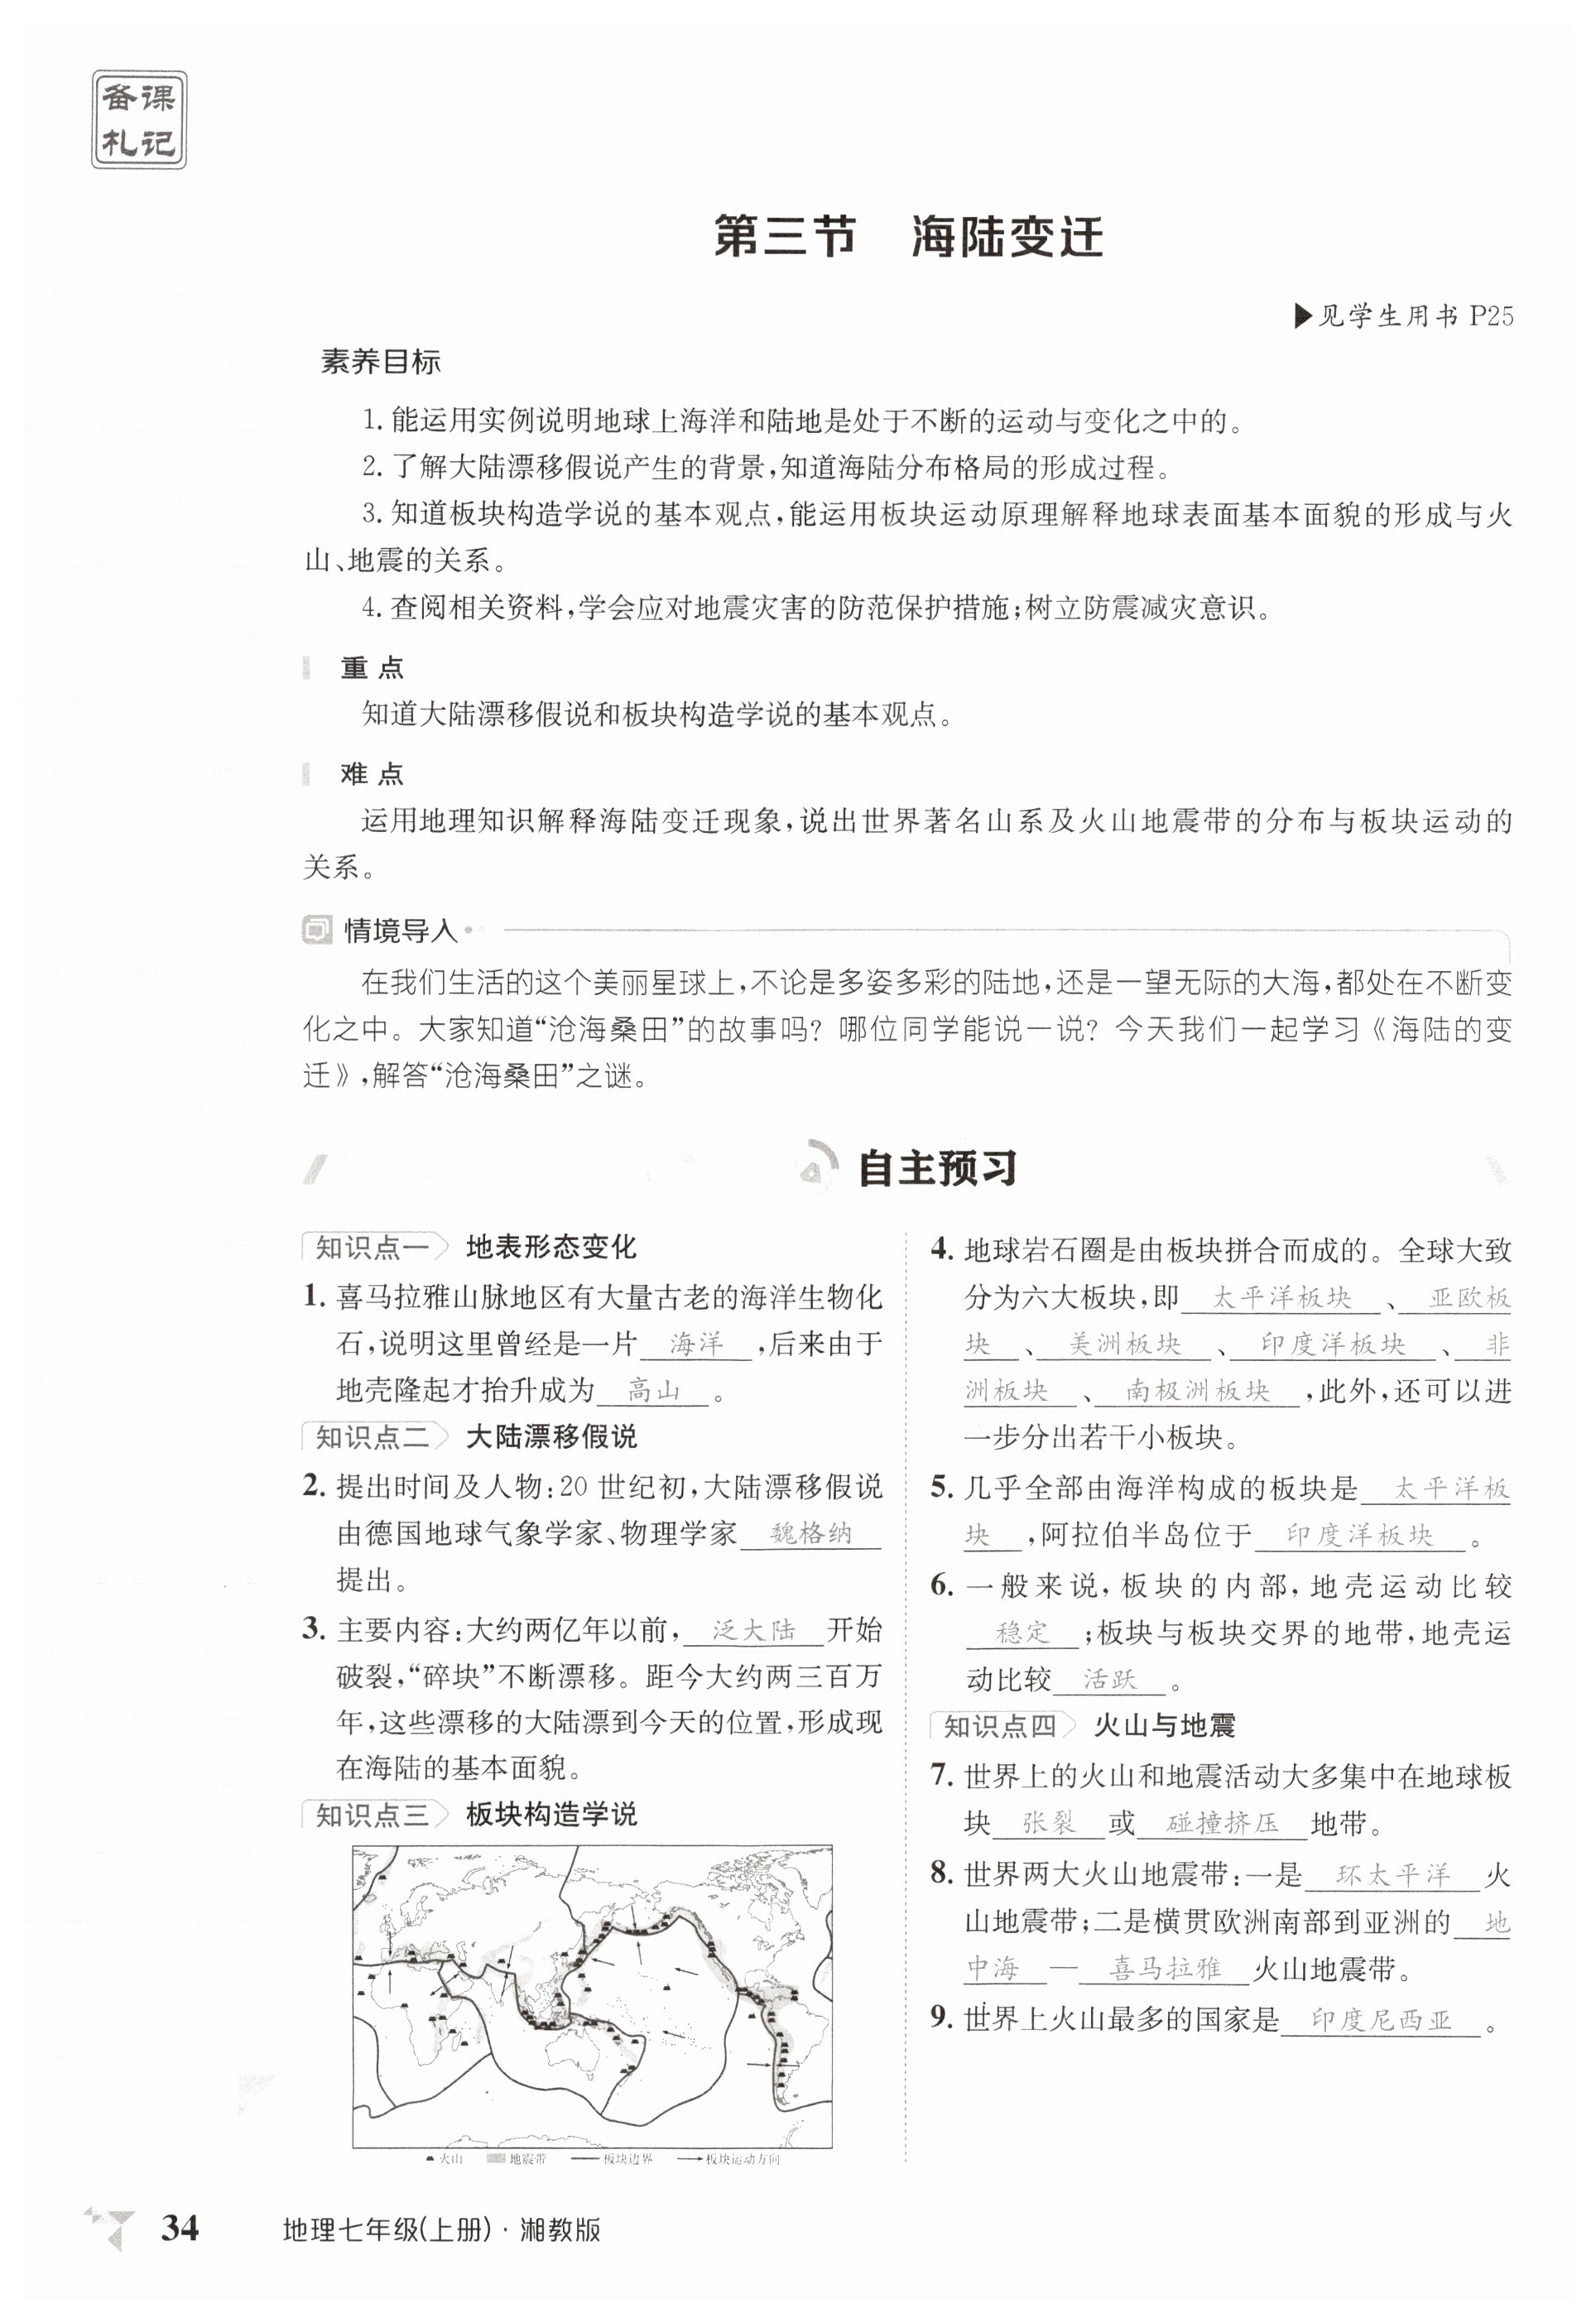 备课
札记
第三节 海陆变迁
▶见学生用书 P25
素养目标
1. 能运用实例说明地球上海洋和陆地是处于不断的运动与变化之中的。
2. 了解大陆漂移假说产生的背景,知道海陆分布格局的形成过程。
3. 知道板块构造学说的基本观点,能运用板块运动原理解释地球表面基本面貌的形成与火
山、地震的关系。
4. 查阅相关资料,学会应对地震灾害的防范保护措施;树立防震减灾意识。
重点
知道大陆漂移假说和板块构造学说的基本观点。
难点
运用地理知识解释海陆变迁现象,说出世界著名山系及火山地震带的分布与板块运动的
关系。
情境导入
在我们生活的这个美丽星球上,不论是多姿多彩的陆地,还是一望无际的大海,都处在不断变
化之中。大家知道“沧海桑田”的故事吗?哪位同学能说一说?今天我们一起学习《海陆的变
迁》,解答“沧海桑田”之谜。
自主预习
知识点一 地表形态变化
1. 喜马拉雅山脉地区有大量古老的海洋生物化
石,说明这里曾经是一片 海洋 ,后来由于
地壳隆起才抬升成为 高山 。
知识点二 大陆漂移假说
2. 提出时间及人物:20 世纪初,大陆漂移假说
由德国地球气象学家、物理学家 魏格纳
提出。
3. 主要内容:大约两亿年以前, 泛大陆 开始
破裂,“碎块”不断漂移。距今大约两三百万
年,这些漂移的大陆漂到今天的位置,形成现
在海陆的基本面貌。
知识点三 板块构造学说
火山 地震带 板块边界 板块运动方向
4. 地球岩石圈是由板块拼合而成的。全球大致
分为六大板块,即 太平洋板块 、 亚欧板
块 、 美洲板块 、 印度洋板块 、 非
洲板块 、 南极洲板块 ,此外,还可以进
一步分出若干小板块。
5. 几乎全部由海洋构成的板块是 太平洋板
块 ,阿拉伯半岛位于 印度洋板块 。
6. 一般来说,板块的内部,地壳运动比较
稳定 ;板块与板块交界的地带,地壳运
动比较 活跃 。
知识点四 火山与地震
7. 世界上的火山和地震活动大多集中在地球板
块 张裂 或 碰撞挤压 地带。
8. 世界两大火山地震带:一是 环太平洋 火
山地震带;二是横贯欧洲南部到亚洲的 地
中海 — 喜马拉雅 火山地震带。
9. 世界上火山最多的国家是 印度尼西亚 。
34 地理七年级(上册)·湘教版